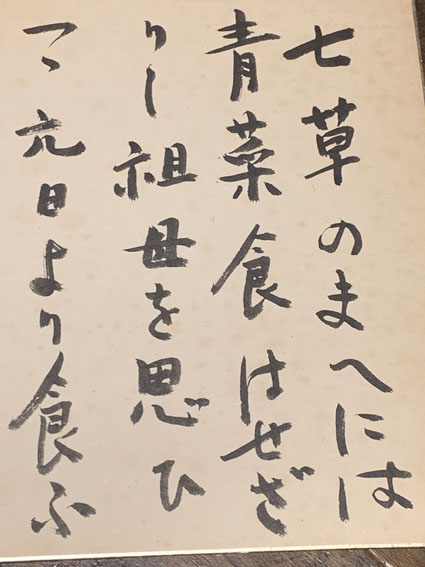 七草のまへには
青菜食はせざ
りし祖母を思ひ
つゝ元日より食ふ